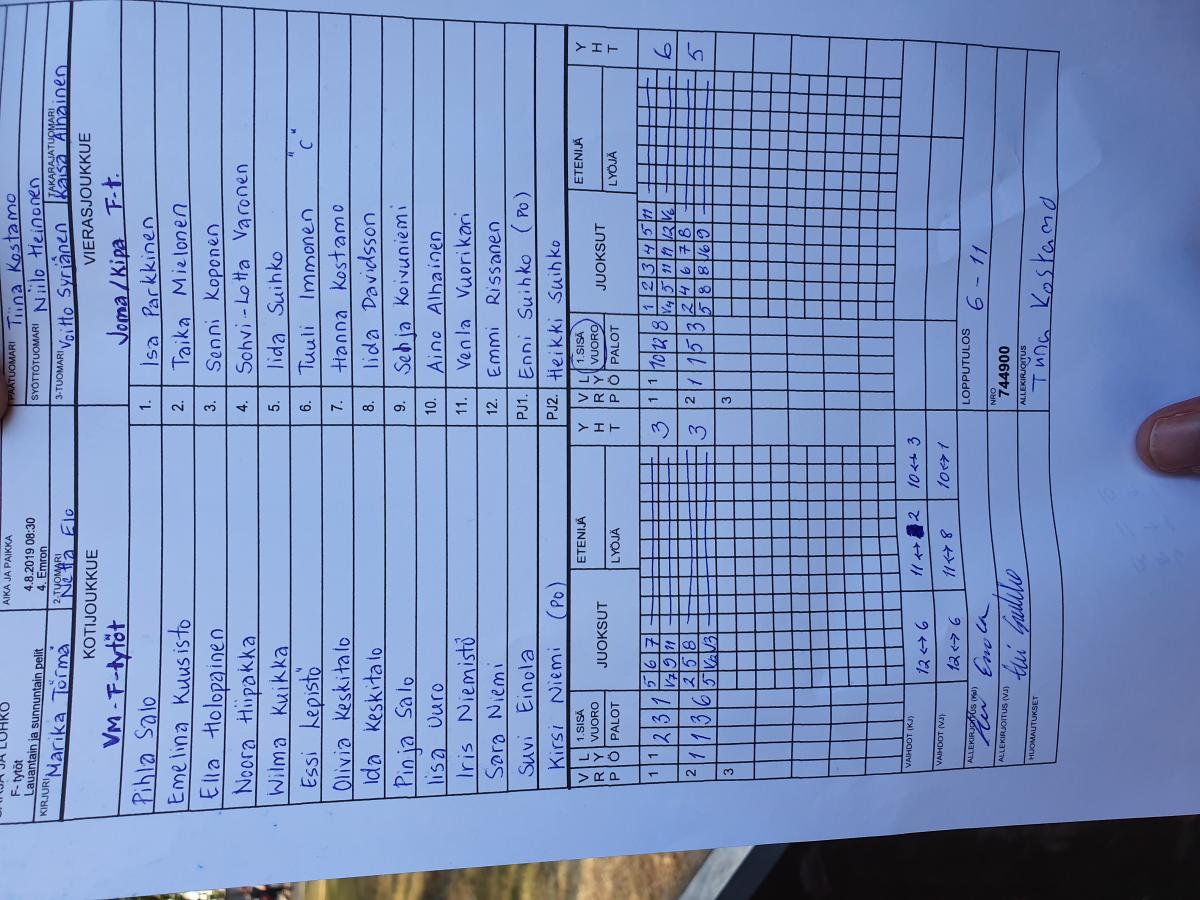 SARJA JA LOHKO
F- tytöt
Lauantain ja sunnuntain pelit
AIKA JA PAIKKA
4.8.2019 08:30
4. Emron
PÄÄTUOMARI Tiina Kostamo
SYÖTTÖTUOMARI Niilo Heinonen
KIRJURI Marika Törmä
2-TUOMARI Netta Elo
3-TUOMARI Voitto Syrjänen
TAKARAJATUOMARI Kaisa Alhainen
KOTIJOUKKUE VIERASJOUKKUE
VM - F-tytöt Joma/Kipa F-t.
Pihla Salo 1. Isa Parkkinen
Emelina Kuusisto 2. Taika Mielonen
Ella Holopainen 3. Senni Koponen
Noora Hiipakka 4. Sohvi-Lotta Varonen
Wilma Kuikka 5. Iida Suihko
Essi Lepistö 6. Tuuli Immonen "C"
Olivia Keskitalo 7. Hanna Kostamo
Ida Keskitalo 8. Iida Davidsson
Pinja Salo 9. Selja Koivuniemi
Iisa Uuro 10. Aino Alhainen
Iris Niemistö 11. Venla Vuorikari
Sara Niemi 12. Emmi Rissanen
Suvi Einola PJ1. Enni Suihko (Po)
Kirsi Niemi (Po) PJ2. Heikki Suihko
V L 1.SISÄ JUOKSUT ETENIJÄ Y V L 1.SISÄ JUOKSUT ETENIJÄ Y
R Y VUORO H R Y VUORO H
P Ö PALOT LYÖJÄ T P Ö PALOT LYÖJÄ T
1 1 2 3 1 5 6 7 3 1 1 10 12 8 1 2 3 4 5 11 6
V2 9 11 V4 5 11 11 12 V6
2 1 1 3 6 2 5 8 3 2 1 1 5 3 2 4 6 7 8 5
5 V2 V3 5 8 8 J6 9
3 3
VAIHDOT (KJ) 12↔6 11↔2 10↔3
VAIHDOT (VJ) 12↔6 11↔8 10↔1
ALLEKIRJOITUS (KJ) Einola
LOPPUTULOS 6 - 11
ALLEKIRJOITUS (VJ) Suihko
NRO
744900
HUOMAUTUKSET
ALLEKIRJOITUS
Tiina Kostamo